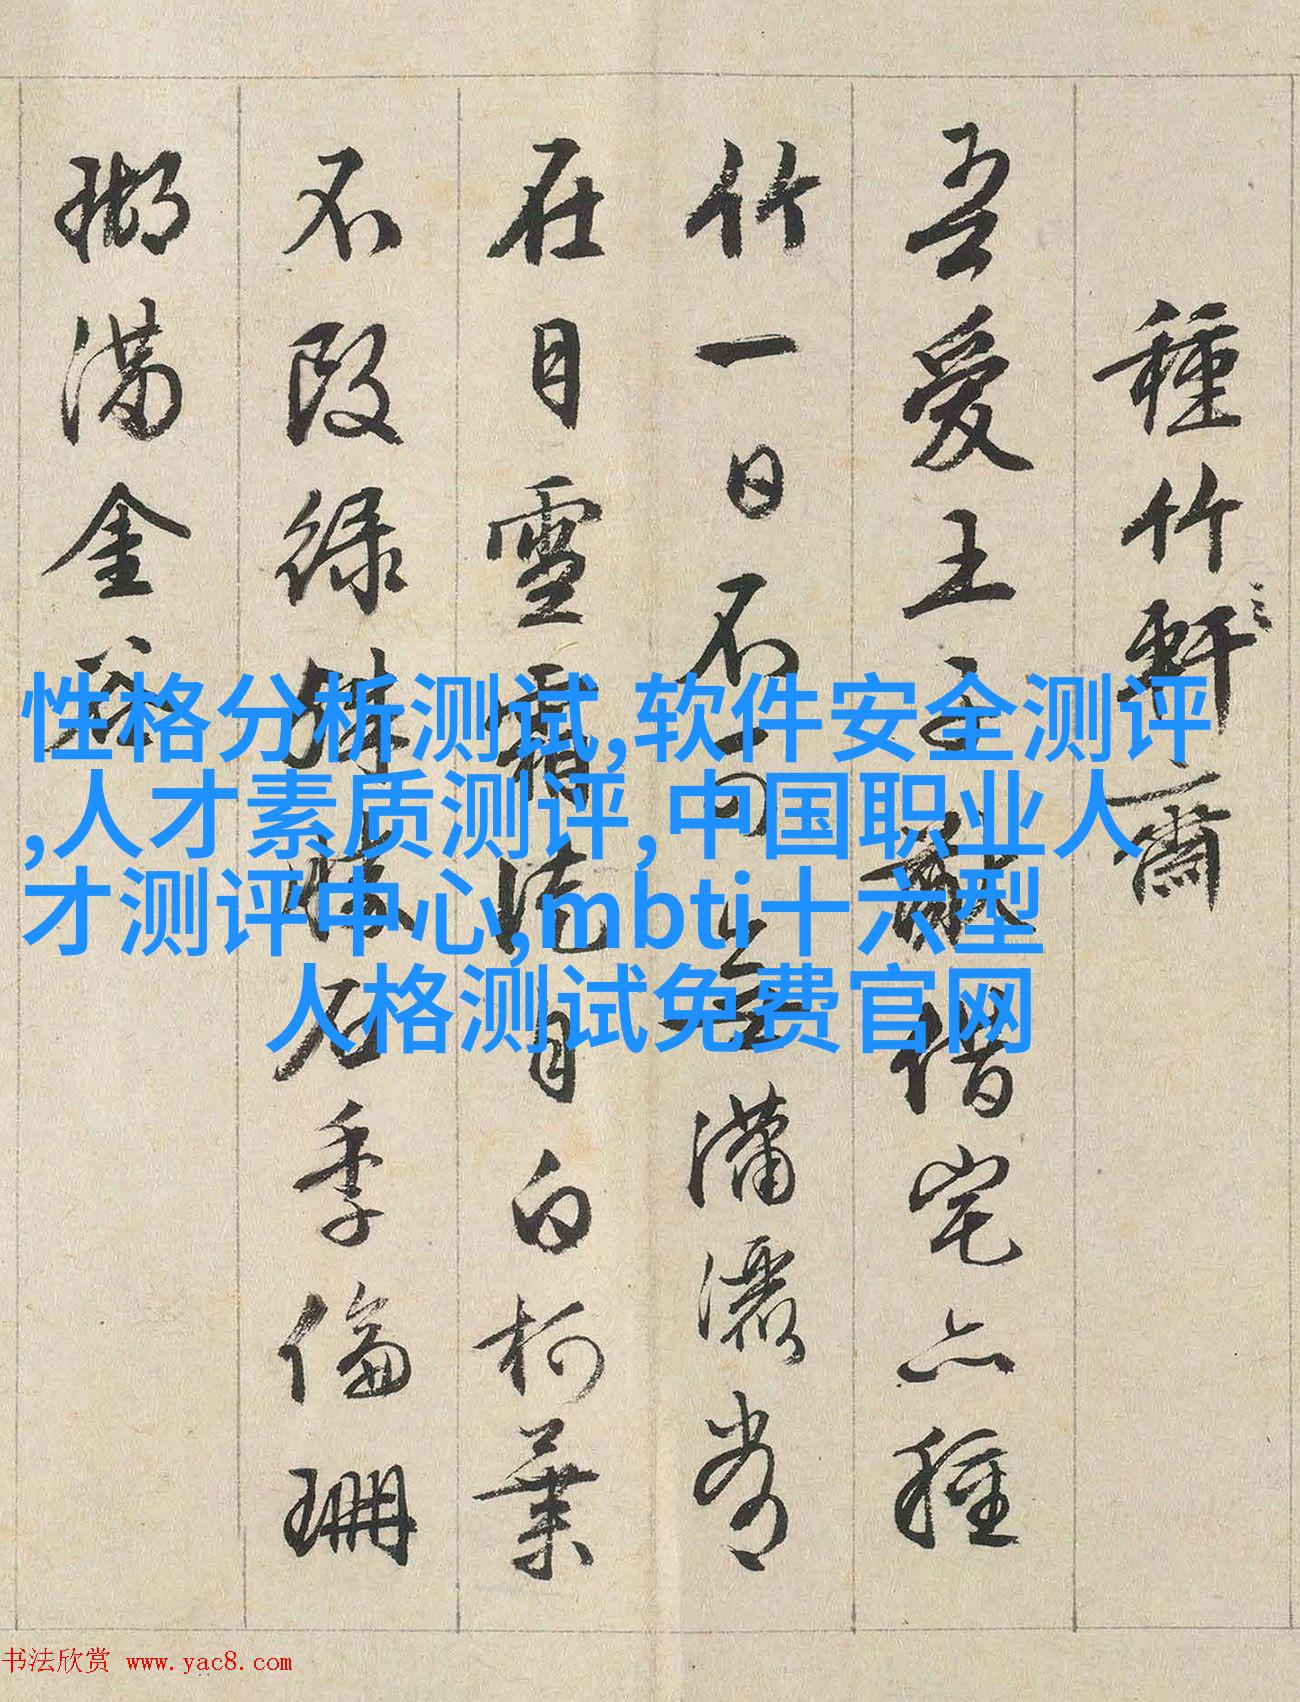 種竹軒齋
吾愛王子猷借宅亦種
竹一日不可無瀟灑常
在目雪霜徒自白柯葉
不改綠殊勝石季倫珊
瑚滿金谷
性格分析测试,软件安全测评
,人才素质测评,中国职业人
才测评中心,mbti十六型
人格测试免费官网
书法欣赏 www.yac8.com